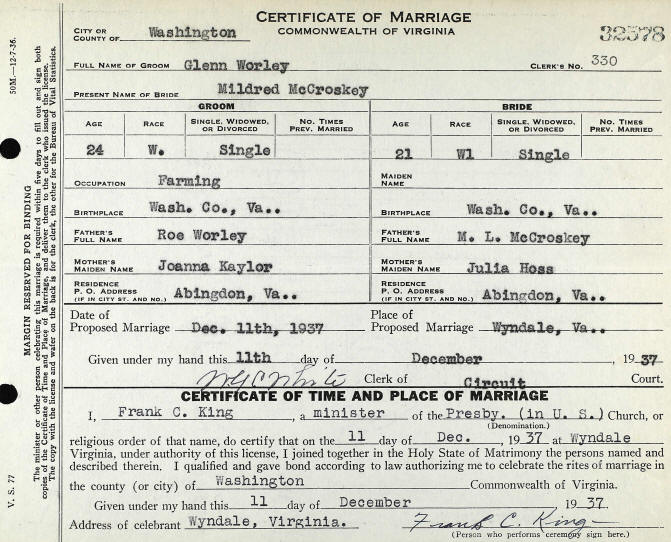 CERTIFICATE OF MARRIAGE
COMMONWEALTH OF VIRGINIA
32578
CITY OR COUNTY OF Washington
FULL NAME OF GROOM Glenn Worley CLERK'S NO. 330
PRESENT NAME OF BRIDE Mildred McCroskey
GROOM BRIDE
AGE RACE SINGLE, WIDOWED, OR DIVORCED NO. TIMES PREV. MARRIED AGE RACE SINGLE, WIDOWED, OR DIVORCED NO. TIMES PREV. MARRIED
24 W. Single 21 W1 Single
OCCUPATION Farming MAIDEN NAME
BIRTHPLACE Wash. Co., Va.. BIRTHPLACE Wash. Co., Va..
FATHER'S FULL NAME Roe Worley FATHER'S FULL NAME M. L. McCroskey
MOTHER'S MAIDEN NAME Joanna Kaylor MOTHER'S MAIDEN NAME Julia Hoss
RESIDENCE P. O. ADDRESS (IF IN CITY ST. AND NO.) Abingdon, Va.. RESIDENCE P. O. ADDRESS (IF IN CITY ST. AND NO.) Abingdon, Va..
Date of Proposed Marriage Dec. 11th, 1937 Place of Proposed Marriage Wyndale, Va..
Given under my hand this 11th day of December 1937
White Clerk of Circuit Court.
CERTIFICATE OF TIME AND PLACE OF MARRIAGE
I, Frank C. King, a minister of the Presby. (in U. S.) Church, or
(Denomination.)
religious order of that name, do certify that on the 11 day of Dec., 1937 at Wyndale
Virginia, under authority of this license, I joined together in the Holy State of Matrimony the persons named and
described therein. I qualified and gave bond according to law authorizing me to celebrate the rites of marriage in
the county (or city) of Washington Commonwealth of Virginia.
Given under my hand this 11 day of December 1937.
Address of celebrant Wyndale, Virginia. Frank C. King
(Person who performs ceremony sign here.)
50M.—12-7-36.
MARGIN RESERVED FOR BINDING
V. S. 77
The minister or other person celebrating this marriage is required within five days to fill out and sign both
copies of the Certificate of Time and Place of Marriage, and deliver them to the clerk who issued the license.
The copy with the license and waiver on the back is for the clerk, the other for the Bureau of Vital Statistics.